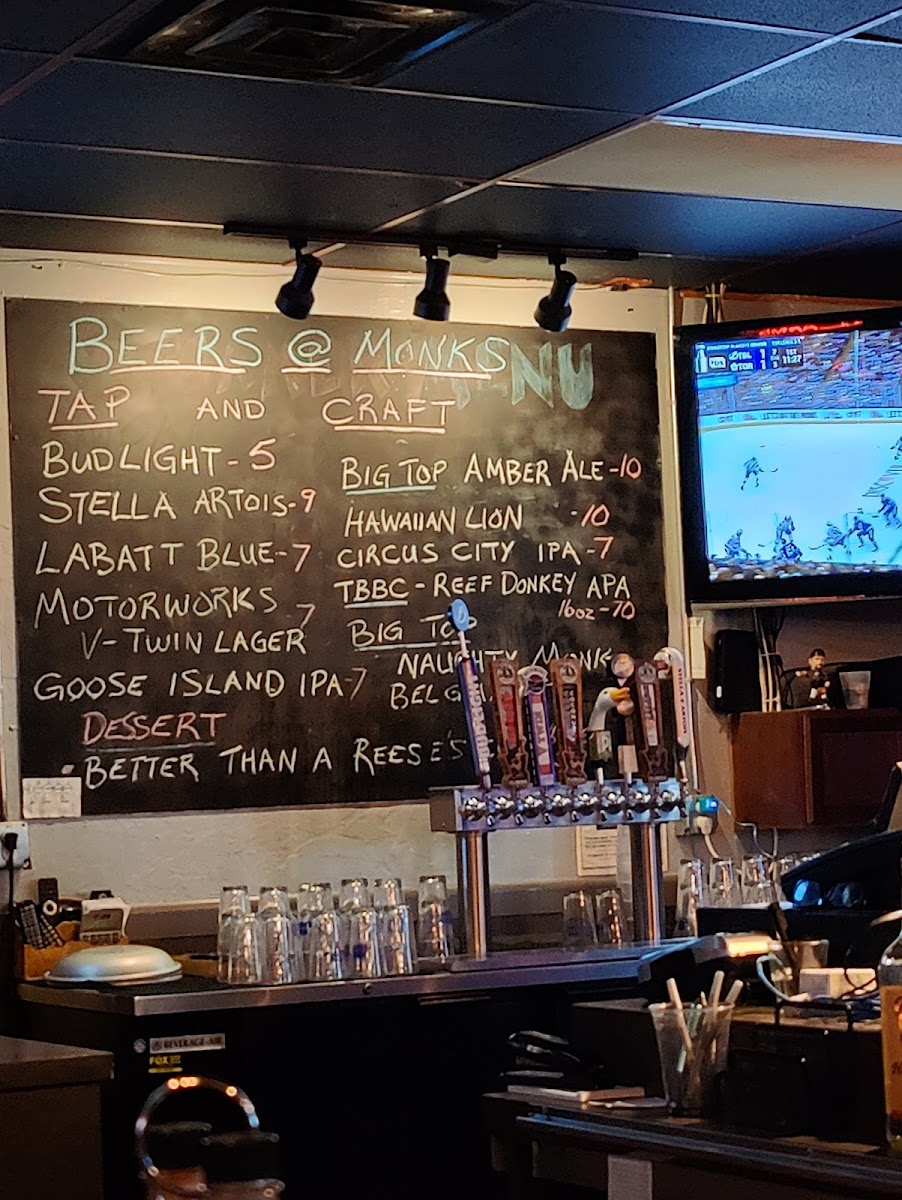 BEERS @ MONKS
NU
TAP AND CRAFT
BUDLIGHT - 5
STELLA ARTOIS - 9
LABATT BLUE - 7
MOTORWORKS - 7
V-TWIN LAGER
GOOSE ISLAND IPA - 7
BIG TOP AMBER ALE - 10
HAWAIIAN LION - 10
CIRCUS CITY IPA - 7
TBBC - REEF DONKEY APA
16oz - 10
BIG TOP
NAUGHTY MONK
DESSERT
- BETTER THAN A REESE'S
BUD LIGHT
TBL 1
TOR 1
1ST
11:27
BEVERAGE-AIR